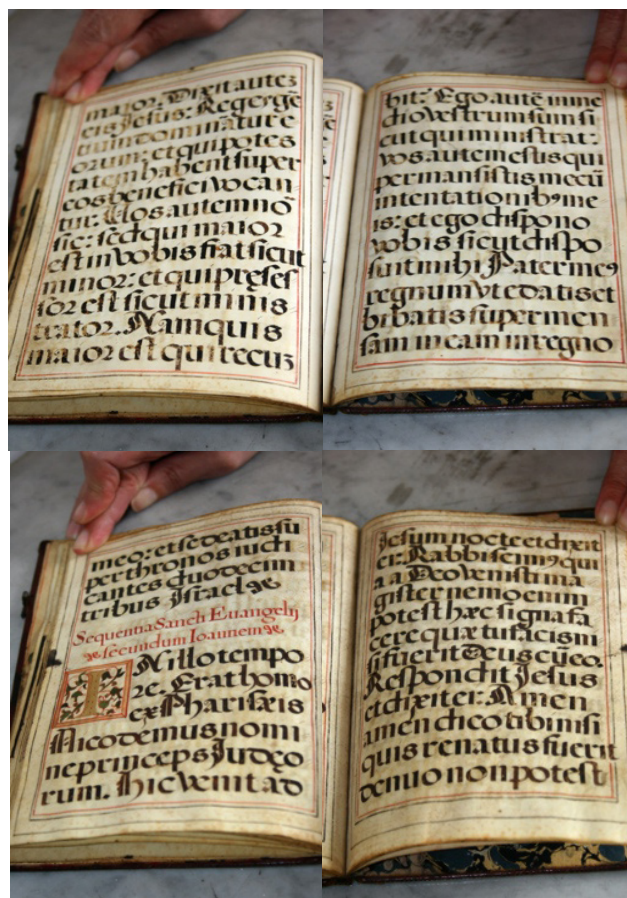 maior. Dixit autez
eis Jesus: Reges gē
tium dominātur e
orum: et qui potes
tatem habent super
eos benefici vocan
tur. Vos autem nō
sic: sed qui maior
est in vobis fiat sicut
minor: et qui pręses
sor est sicut minis
trator. Nam quis
maior est qui recuz
bit: Ego autē in me
dio vestrum sum si
cut qui ministrat:
vos autem estis qui
permansistis mecū
in tentationibꝰ me
is: et ego dispono
vobis sicut dispo
suit mihi Pater meꝰ
regnum vt edatis et
bibatis super men
sam meam in regno
meo: et sedeatis sū
per thronos iudi
cantes duodecim
tribus Israel
Sequentia Sancti Euangelij
secundum Ioannem
IN illo tempo
re. Erat homo
ex Pharisæis
Nicodemus nomi
ne princeps Judęo
rum. Hic venit ad
Jesum nocte et dixit
ei: Rabbi scimꝰ qui
a a Deo venisti ma
gister nemo enim
potest hæc signa fa
cere quæ tu facis ni
si fuerit Deus cū eo.
Respondit Jesus
et dixit ei: Amen
amen dico tibi nisi
quis renatus fuerit
denuo non potest